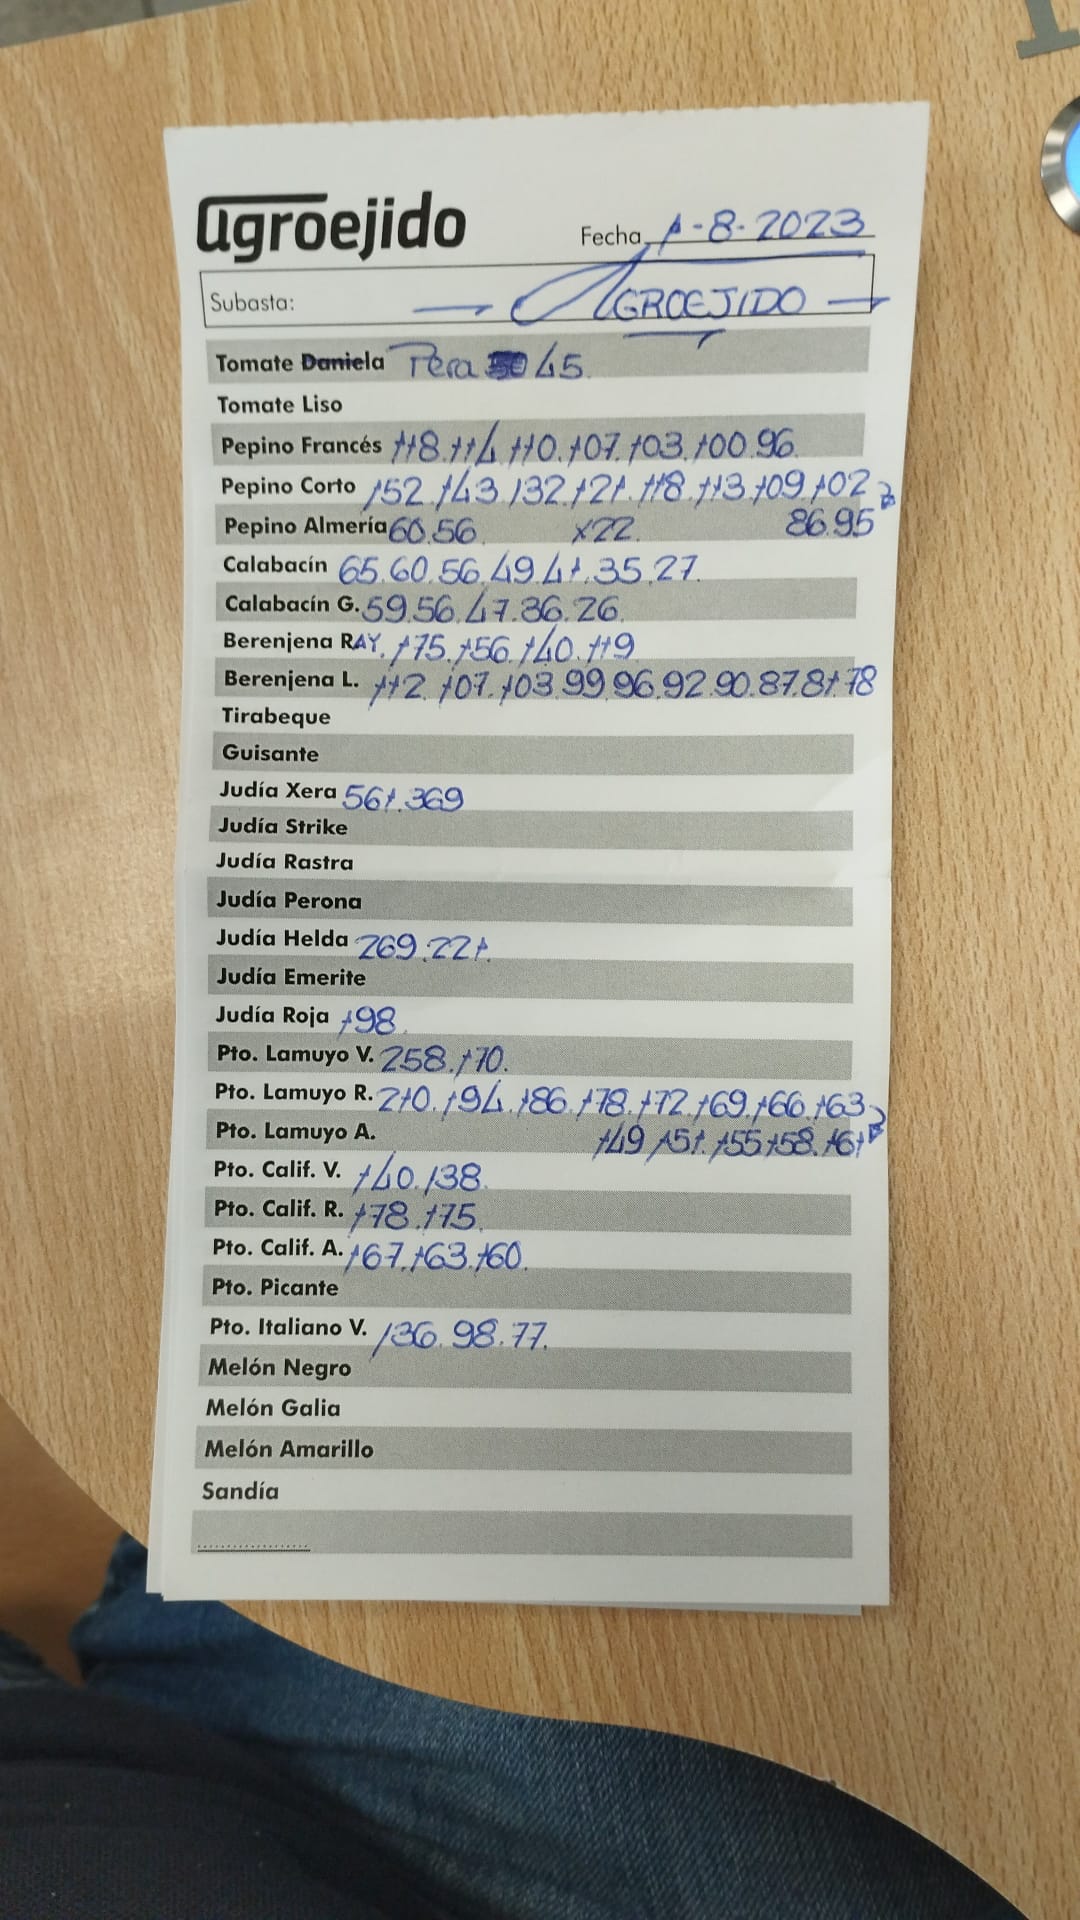 agroejido
Fecha 1-8-2023
Subasta: — AGROEJIDO —
Tomate Daniela Pera 45.
Tomate Liso
Pepino Francés 118.114.110.107.103.100.96.
Pepino Corto 152.143.132.121.118.113.109.102
Pepino Almería 60.56. x22. 86.95
Calabacín 65.60.56.49.41.35.27.
Calabacín G. 59.56.47.36.26.
Berenjena RAY. 175.156.140.119
Berenjena L. 112.107.103.99.96.92.90.87.81.78
Tirabeque
Guisante
Judía Xera 561.369
Judía Strike
Judía Rastra
Judía Perona
Judía Helda 269.221.
Judía Emerite
Judía Roja 198.
Pto. Lamuyo V. 258.170.
Pto. Lamuyo R. 210.194.186.178.172.169.166.163
Pto. Lamuyo A. 149.151.155.158.161
Pto. Calif. V. 140.138.
Pto. Calif. R. 178.175.
Pto. Calif. A. 167.163.160.
Pto. Picante
Pto. Italiano V. 136.98.77.
Melón Negro
Melón Galia
Melón Amarillo
Sandía